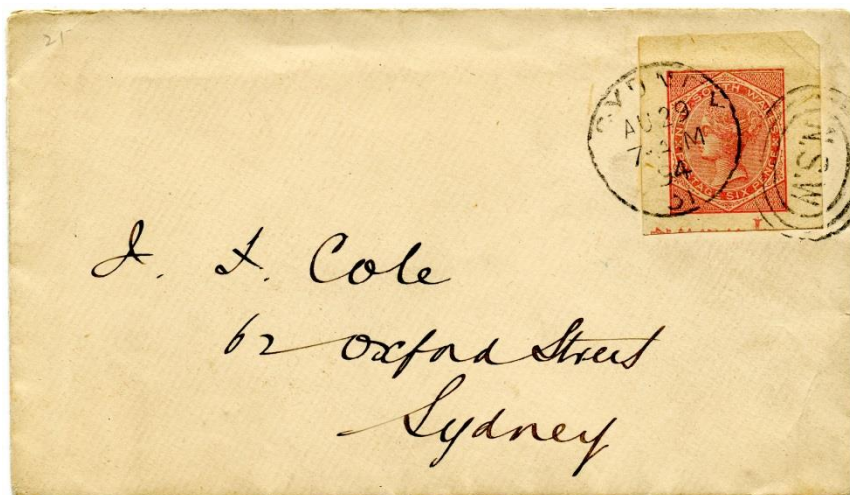 21
SYDNEY
AU 29
94
51
NEW SOUTH WALES
POSTAGE SIX PENCE
N.S.W
J. F. Cole
62 Oxford Street
Sydney